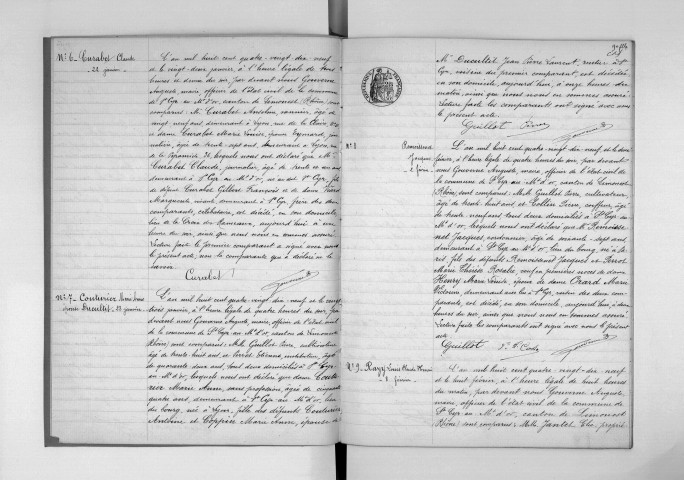 N° 6 - Curabet Claude
- 22 janvier -
L'an mil huit cent quatre-vingt-dix neuf
et le vingt-deux janvier, à l'heure légale de
heures et demie du soir, par devant nous Gouverne
Auguste, maire, officier de l'état civil de la commune
de St Cyr au Mt d'or, canton de Limonest (Rhône), sont
comparus: Mr Curabet Anselme, vannier, âgé de
vingt neuf ans demeurant à Lyon, rue de la
et dame Curabet Marie Louise, épouse Eymard, jour-
nalière, âgée de trente-sept ans, demeurant à Lyon, rue
de la Pyramide 76, lesquels nous ont déclaré que Mr
Curabet Claude, journalier, âgé de trente six ans
demeurant à St Cyr au Mt d'or, né au dit St Cyr, fils
de défunt Curabet Gilbert François et de dame
Marguerite vivant, demeurant à St Cyr, frère des deux
comparants, célibataire, est décédé, en son domicile,
lieu de la Croix des Rameaux, aujourd'hui à une
heure du soir, ainsi que nous nous en sommes assuré.
Lecture faite le premier comparant a signé avec nous
le présent acte, non la comparante qui a déclaré ne le
savoir.
Curabet
N° 7 - Couturier Marie Anne
épouse Ducullet - 23 janvier -
L'an mil huit cent quatre-vingt-dix-neuf et le vingt
trois janvier, à l'heure légale de quatre heures du soir, par
devant nous Gouverne Auguste, maire, officier de l'état civil
de la commune de St Cyr au Mt d'or, canton de Limonest
(Rhône) sont comparus: MM. Guillot Pierre, cultivateur,
âgé de trente huit ans et Perret Etienne, instituteur, âgé
de quarante deux ans, tous deux domiciliés à St Cyr
au Mt d'or, lesquels nous ont déclaré que dame Coutu-
rier Marie Anne, sans profession, âgée de cinquante
quatre ans, demeurant à St Cyr au Mt d'or, lieu
du bourg, née à Lyon, fille des défunts Couturier
Antoine et Coppier Marie Anne, épouse de
Mr Ducullet Jean Pierre Laurent, rentier à St
Cyr, voisins du premier comparant, est décédée
en son domicile, aujourd'hui, à onze heures du
matin, ainsi que nous nous en sommes assuré.
Lecture faite les comparants ont signé avec nous
le présent acte.
Guillot Perret
N° 8
Remoissenet
Jacques
- 2 février -
L'an mil huit cent quatre-vingt-dix-neuf et le deux
février, à l'heure légale de quatre heures du soir, par devant
nous Gouverne Auguste, maire, officier de l'état civil de
la commune de St Cyr au Mt d'or, canton de Limonest
(Rhône), sont comparus: MM. Guillot Pierre, cultivateur,
âgé de trente huit ans, et Collin Pierre, coiffeur, âgé
de trente neuf ans, tous deux domiciliés à St Cyr au
Mt d'or, lesquels nous ont déclaré que Mr Remoisse-
net Jacques, cordonnier, âgé de soixante-sept ans,
demeurant à St Cyr au Mt d'or, lieu du bourg, né à
fils des défunts Remoissenet Jacques et Perrot
Marie Thérèse Rosalie, veuf en premières noces de dame
Henry Marie Louise, époux de dame Orard Marie
Victorine demeurant avec lui à St Cyr, voisin des deux com-
parants, est décédé, en son domicile, aujourd'hui, à deux
heures du soir, ainsi que nous nous en sommes assuré.
Lecture faite les comparants ont signé avec nous le présent
acte.
Guillot
N° 9 - Razy Louis Claude
- 8 février -
L'an mil huit cent quatre-vingt-dix-neuf
et le huit février, à l'heure légale de huit heures
du matin, par devant nous Gouverne Auguste,
maire, officier de l'état civil de la commune de
St Cyr au Mt d'or, canton de Limonest
(Rhône) sont comparus: MM. Jantet Elie, proprié-